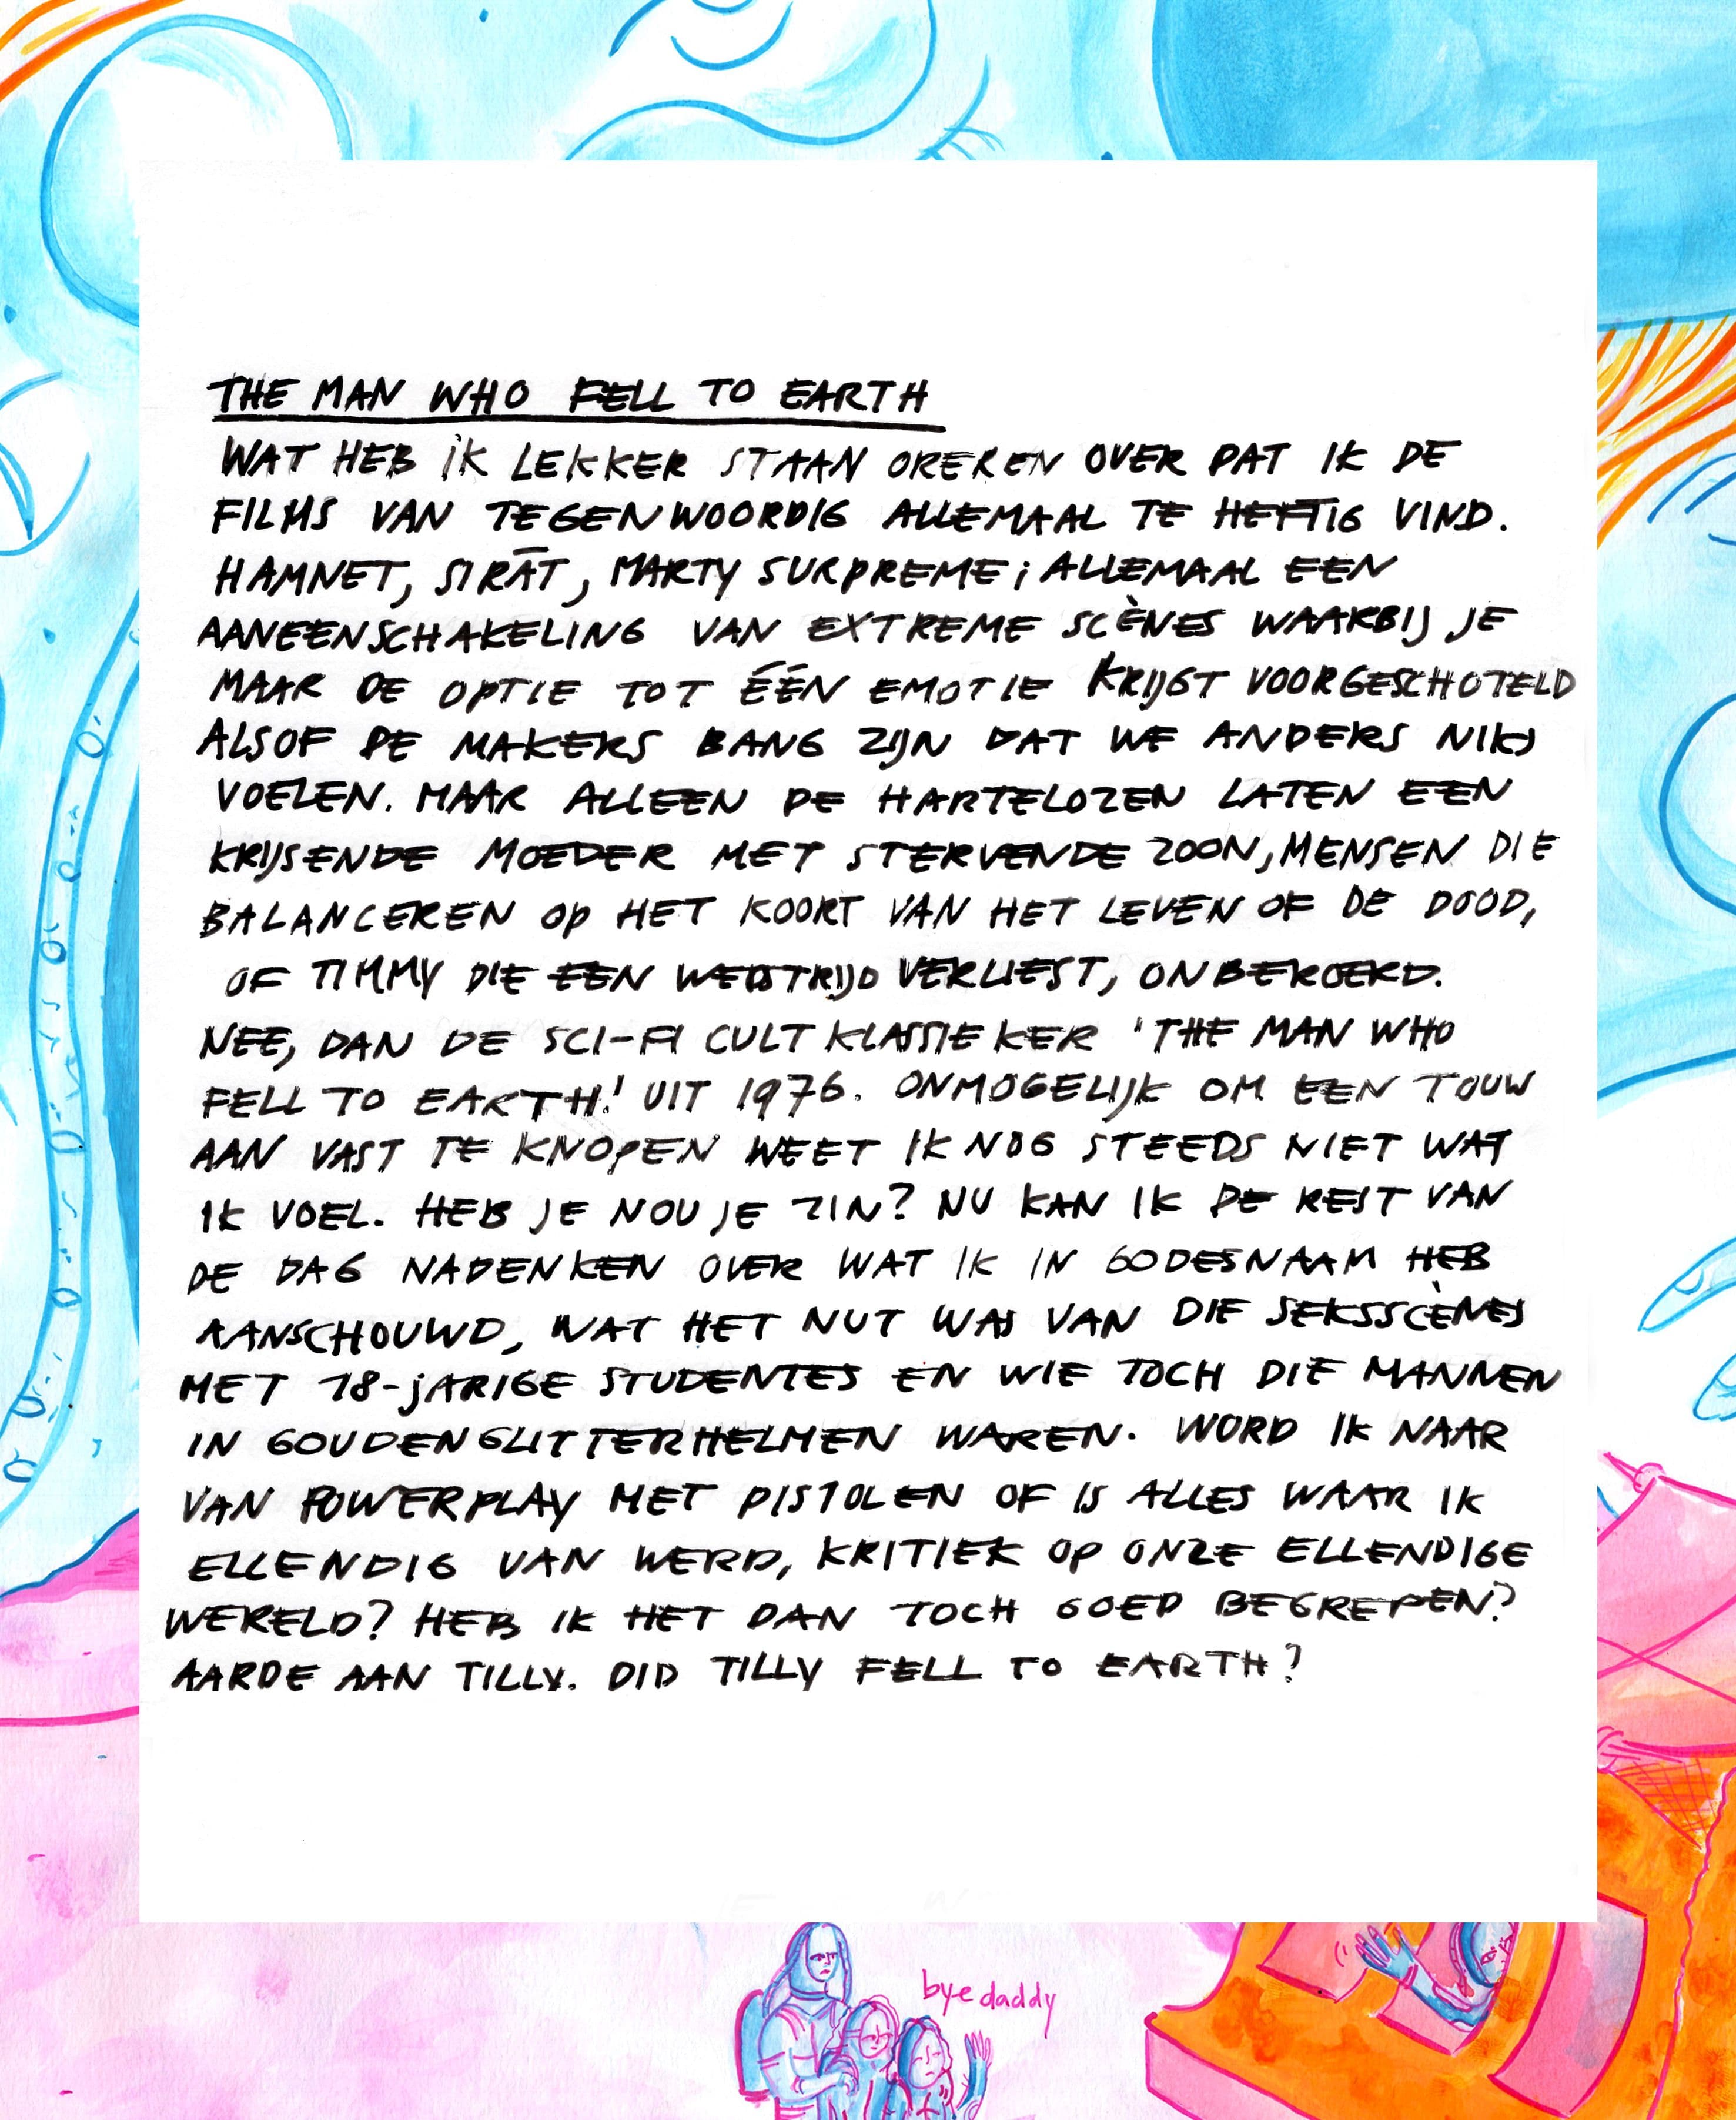 THE MAN WHO FELL TO EARTH
WAT HEB IK LEKKER STAAN OREREN OVER DAT IK DE
FILMS VAN TEGENWOORDIG ALLEMAAL TE HEFTIG VIND.
HAMNET, SIRĀT, MARTY SURPREME; ALLEMAAL EEN
AANEENSCHAKELING VAN EXTREME SCÈNES WAARBIJ JE
MAAR DE OPTIE TOT ÉÉN EMOTIE KRIJGT VOORGESCHOTELD
ALSOF DE MAKERS BANG ZIJN DAT WE ANDERS NIKS
VOELEN. MAAR ALLEEN DE HARTELOZEN LATEN EEN
KRIJSENDE MOEDER MET STERVENDE ZOON, MENSEN DIE
BALANCEREN OP HET KOORT VAN HET LEVEN OF DE DOOD,
OF TIMMY DIE EEN WEDSTRIJD VERLIEST, ONBEROERD.
NEE, DAN DE SCI-FI CULT KLASSIEKER 'THE MAN WHO
FELL TO EARTH!' UIT 1976. ONMOGELIJK OM EEN TOUW
AAN VAST TE KNOPEN WEET IK NOG STEEDS NIET WAT
IK VOEL. HEB JE NOU JE ZIN? NU KAN IK DE REST VAN
DE DAG NADENKEN OVER WAT IK IN GODESNAAM HEB
AANSCHOUWD, WAT HET NUT WAS VAN DIE SEKSSCÈNES
MET 18-JARIGE STUDENTES EN WIE TOCH DIE MANNEN
IN GOUDEN GLITTERHELMEN WAREN. WORD IK NAAR
VAN POWERPLAY MET PISTOLEN OF IS ALLES WAAR IK
ELLENDIG VAN WERD, KRITIEK OP ONZE ELLENDIGE
WERELD? HEB IK HET DAN TOCH GOED BEGREPEN?
AARDE AAN TILLY. DID TILLY FELL TO EARTH?
bye daddy